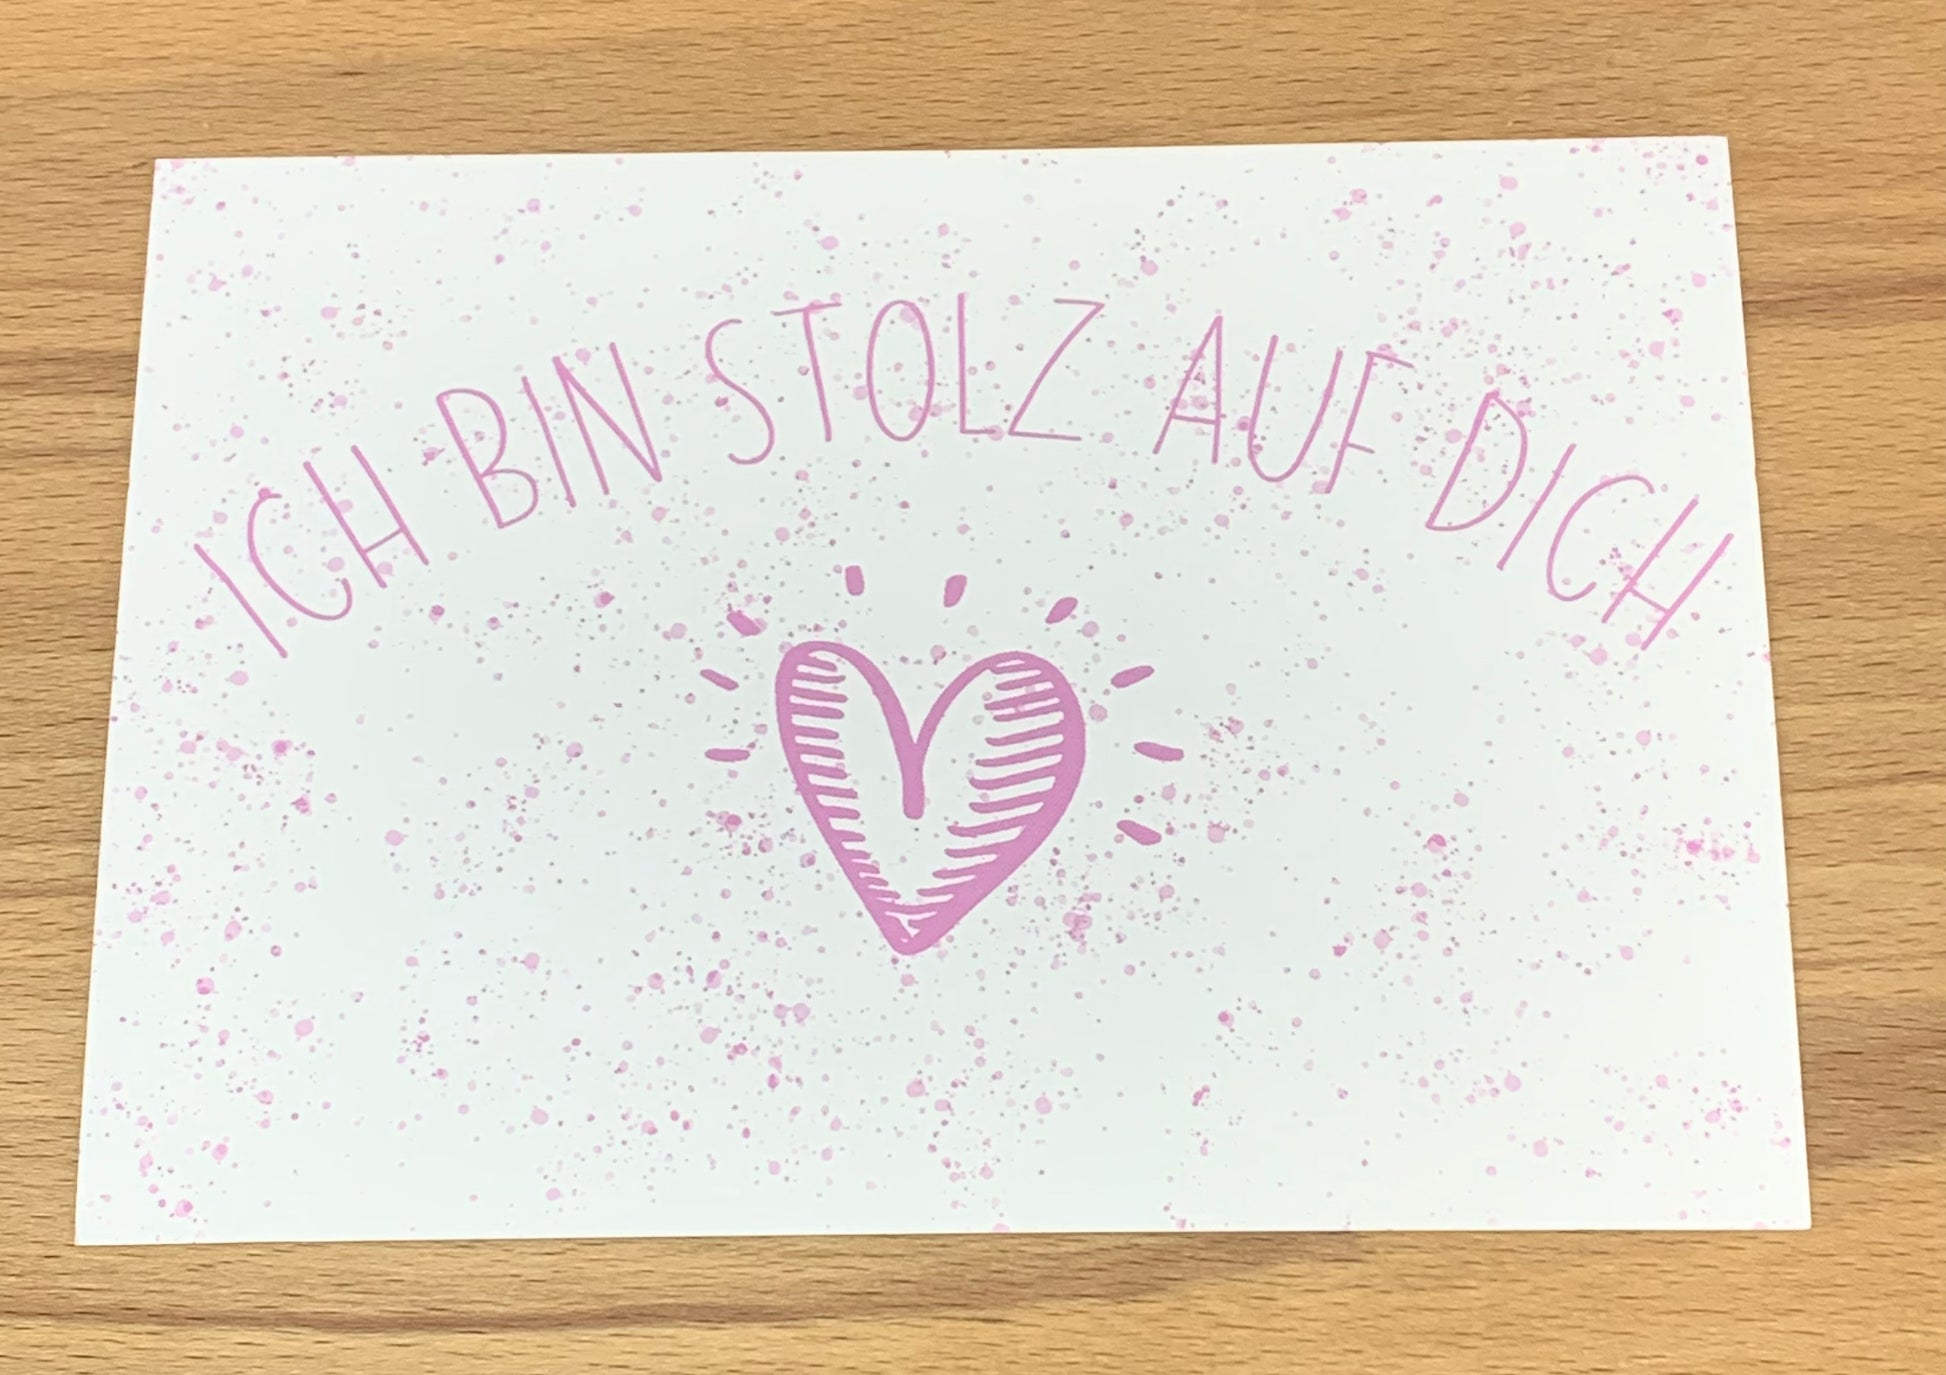 ICH BIN STOLZ AUF DICH